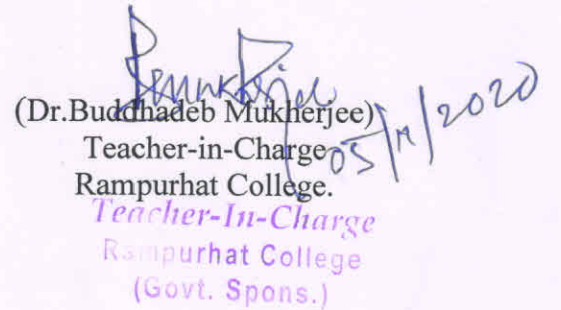 (Dr.Buddhadeb Mukherjee)
Teacher-in-Charge
Rampurhat College.
Teacher-In-Charge
Rampurhat College
(Govt. Spons.)